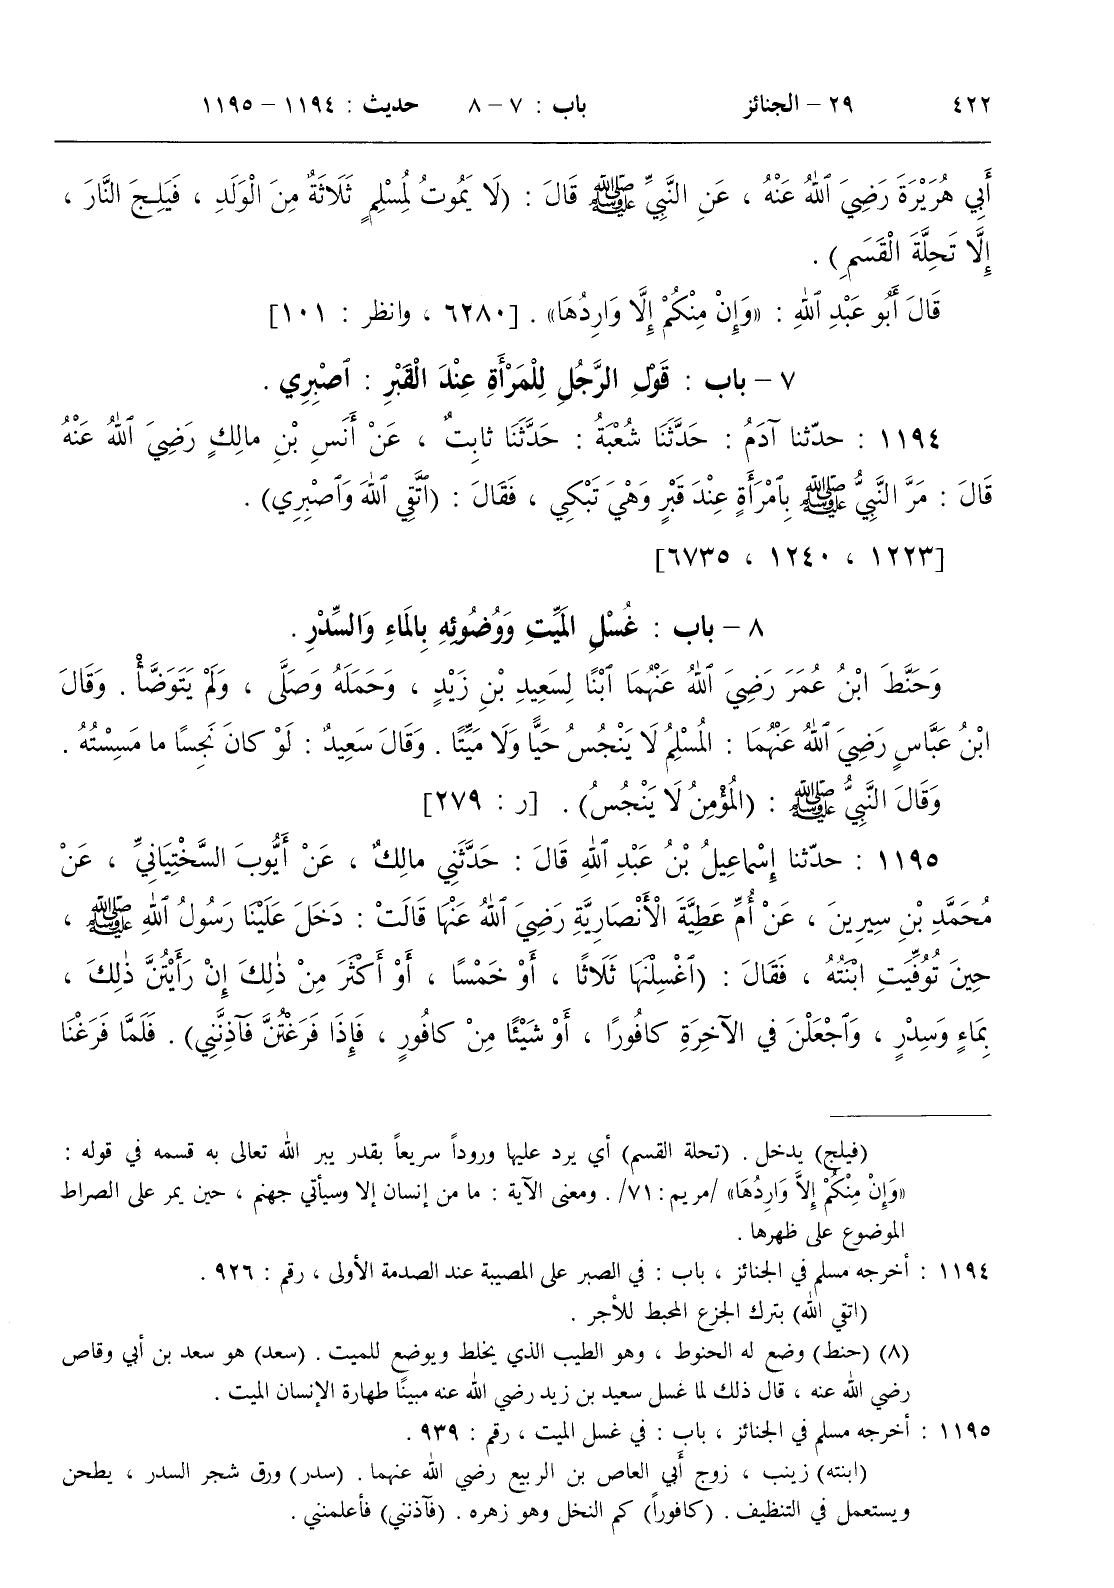 ٤٢٢ ٢٩ – الجنائز باب : ٧ – ٨ حديث : ١١٩٤ – ١١٩٥
أَبِي هُرَيْرَةَ رَضِيَ ٱللهُ عَنْهُ ، عَنِ النَّبِيِّ ﷺ قَالَ : (لَا يَمُوتُ لِمُسْلِمٍ ثَلَاثَةٌ مِنَ الْوَلَدِ ، فَيَلِجَ النَّارَ ،
إِلَّا تَحِلَّةَ الْقَسَمِ) .
قَالَ أَبُو عَبْدِ ٱللهِ : «وَإِنْ مِنْكُمْ إِلَّا وَارِدُهَا» . [٦٢٨٠ ، وانظر : ١٠١]
٧ – باب : قَوْلِ الرَّجُلِ لِلْمَرْأَةِ عِنْدَ الْقَبْرِ : ٱصْبِرِي .
١١٩٤ : حدّثنا آدَمُ : حَدَّثَنَا شُعْبَةُ : حَدَّثَنَا ثابِتٌ ، عَنْ أَنَسِ بْنِ مالِكٍ رَضِيَ ٱللهُ عَنْهُ
قَالَ : مَرَّ النَّبِيُّ ﷺ بِٱمْرَأَةٍ عِنْدَ قَبْرٍ وَهْيَ تَبْكِي ، فَقَالَ : (ٱتَّقِي ٱللهَ وَٱصْبِرِي) .
[١٢٢٣ ، ١٢٤٠ ، ٦٧٣٥]
٨ – باب : غُسْلِ المَيِّتِ وَوُضُوئِهِ بِالمَاءِ وَالسِّدْرِ .
وَحَنَّطَ ابْنُ عُمَرَ رَضِيَ ٱللهُ عَنْهُمَا ٱبْنًا لِسَعِيدِ بْنِ زَيْدٍ ، وَحَمَلَهُ وَصَلَّى ، وَلَمْ يَتَوَضَّأْ . وَقَالَ
ابْنُ عَبَّاسٍ رَضِيَ ٱللهُ عَنْهُمَا : المُسْلِمُ لَا يَنْجُسُ حَيًّا وَلَا مَيِّتًا . وَقَالَ سَعِيدٌ : لَوْ كانَ نَجِسًا ما مَسِسْتُهُ .
وَقَالَ النَّبِيُّ ﷺ : (المُؤْمِنُ لَا يَنْجُسُ) . [ر : ٢٧٩]
١١٩٥ : حدّثنا إِسْماعِيلُ بْنُ عَبْدِ ٱللهِ قَالَ : حَدَّثَنِي مالِكٌ ، عَنْ أَيُّوبَ السَّخْتِيَانِيِّ ، عَنْ
مُحَمَّدِ بْنِ سِيرِينَ ، عَنْ أُمِّ عَطِيَّةَ الْأَنْصَارِيَّةِ رَضِيَ ٱللهُ عَنْهَا قَالَتْ : دَخَلَ عَلَيْنَا رَسُولُ ٱللهِ ﷺ ،
حِينَ تُوُفِّيَتِ ابْنَتُهُ ، فَقَالَ : (ٱغْسِلْنَهَا ثَلَاثًا ، أَوْ خَمْسًا ، أَوْ أَكْثَرَ مِنْ ذٰلِكَ إِنْ رَأَيْتُنَّ ذٰلِكَ ،
بِمَاءٍ وَسِدْرٍ ، وَٱجْعَلْنَ فِي الآخِرَةِ كافُورًا ، أَوْ شَيْئًا مِنْ كافُورٍ ، فَإِذَا فَرَغْتُنَّ فَآذِنَّنِي) . فَلَمَّا فَرَغْنَا
(فيلج) يدخل . (تحلة القسم) أي يرد عليها وروداً سريعاً بقدر يبر الله تعالى به قسمه في قوله :
«وَإِنْ مِنْكُمْ إِلاَّ وَارِدُهَا» /مريم : ٧١/ . ومعنى الآية : ما من إنسان إلا وسيأتي جهنم ، حين يمر على الصراط
الموضوع على ظهرها .
١١٩٤ : أخرجه مسلم في الجنائز ، باب : في الصبر على المصيبة عند الصدمة الأولى ، رقم : ٩٢٦ .
(اتقي الله) بترك الجزع المحبط للأجر .
(٨) (حنط) وضع له الحنوط ، وهو الطيب الذي يخلط ويوضع للميت . (سعد) هو سعد بن أبي وقاص
رضي الله عنه ، قال ذلك لما غسل سعيد بن زيد رضي الله عنه مبينًا طهارة الإنسان الميت .
١١٩٥ : أخرجه مسلم في الجنائز ، باب : في غسل الميت ، رقم : ٩٣٩ .
(ابنته) زينب ، زوج أبي العاص بن الربيع رضي الله عنهما . (سدر) ورق شجر السدر ، يطحن
ويستعمل في التنظيف . (كافوراً) كم النخل وهو زهره . (فآذنني) فأعلمنني .